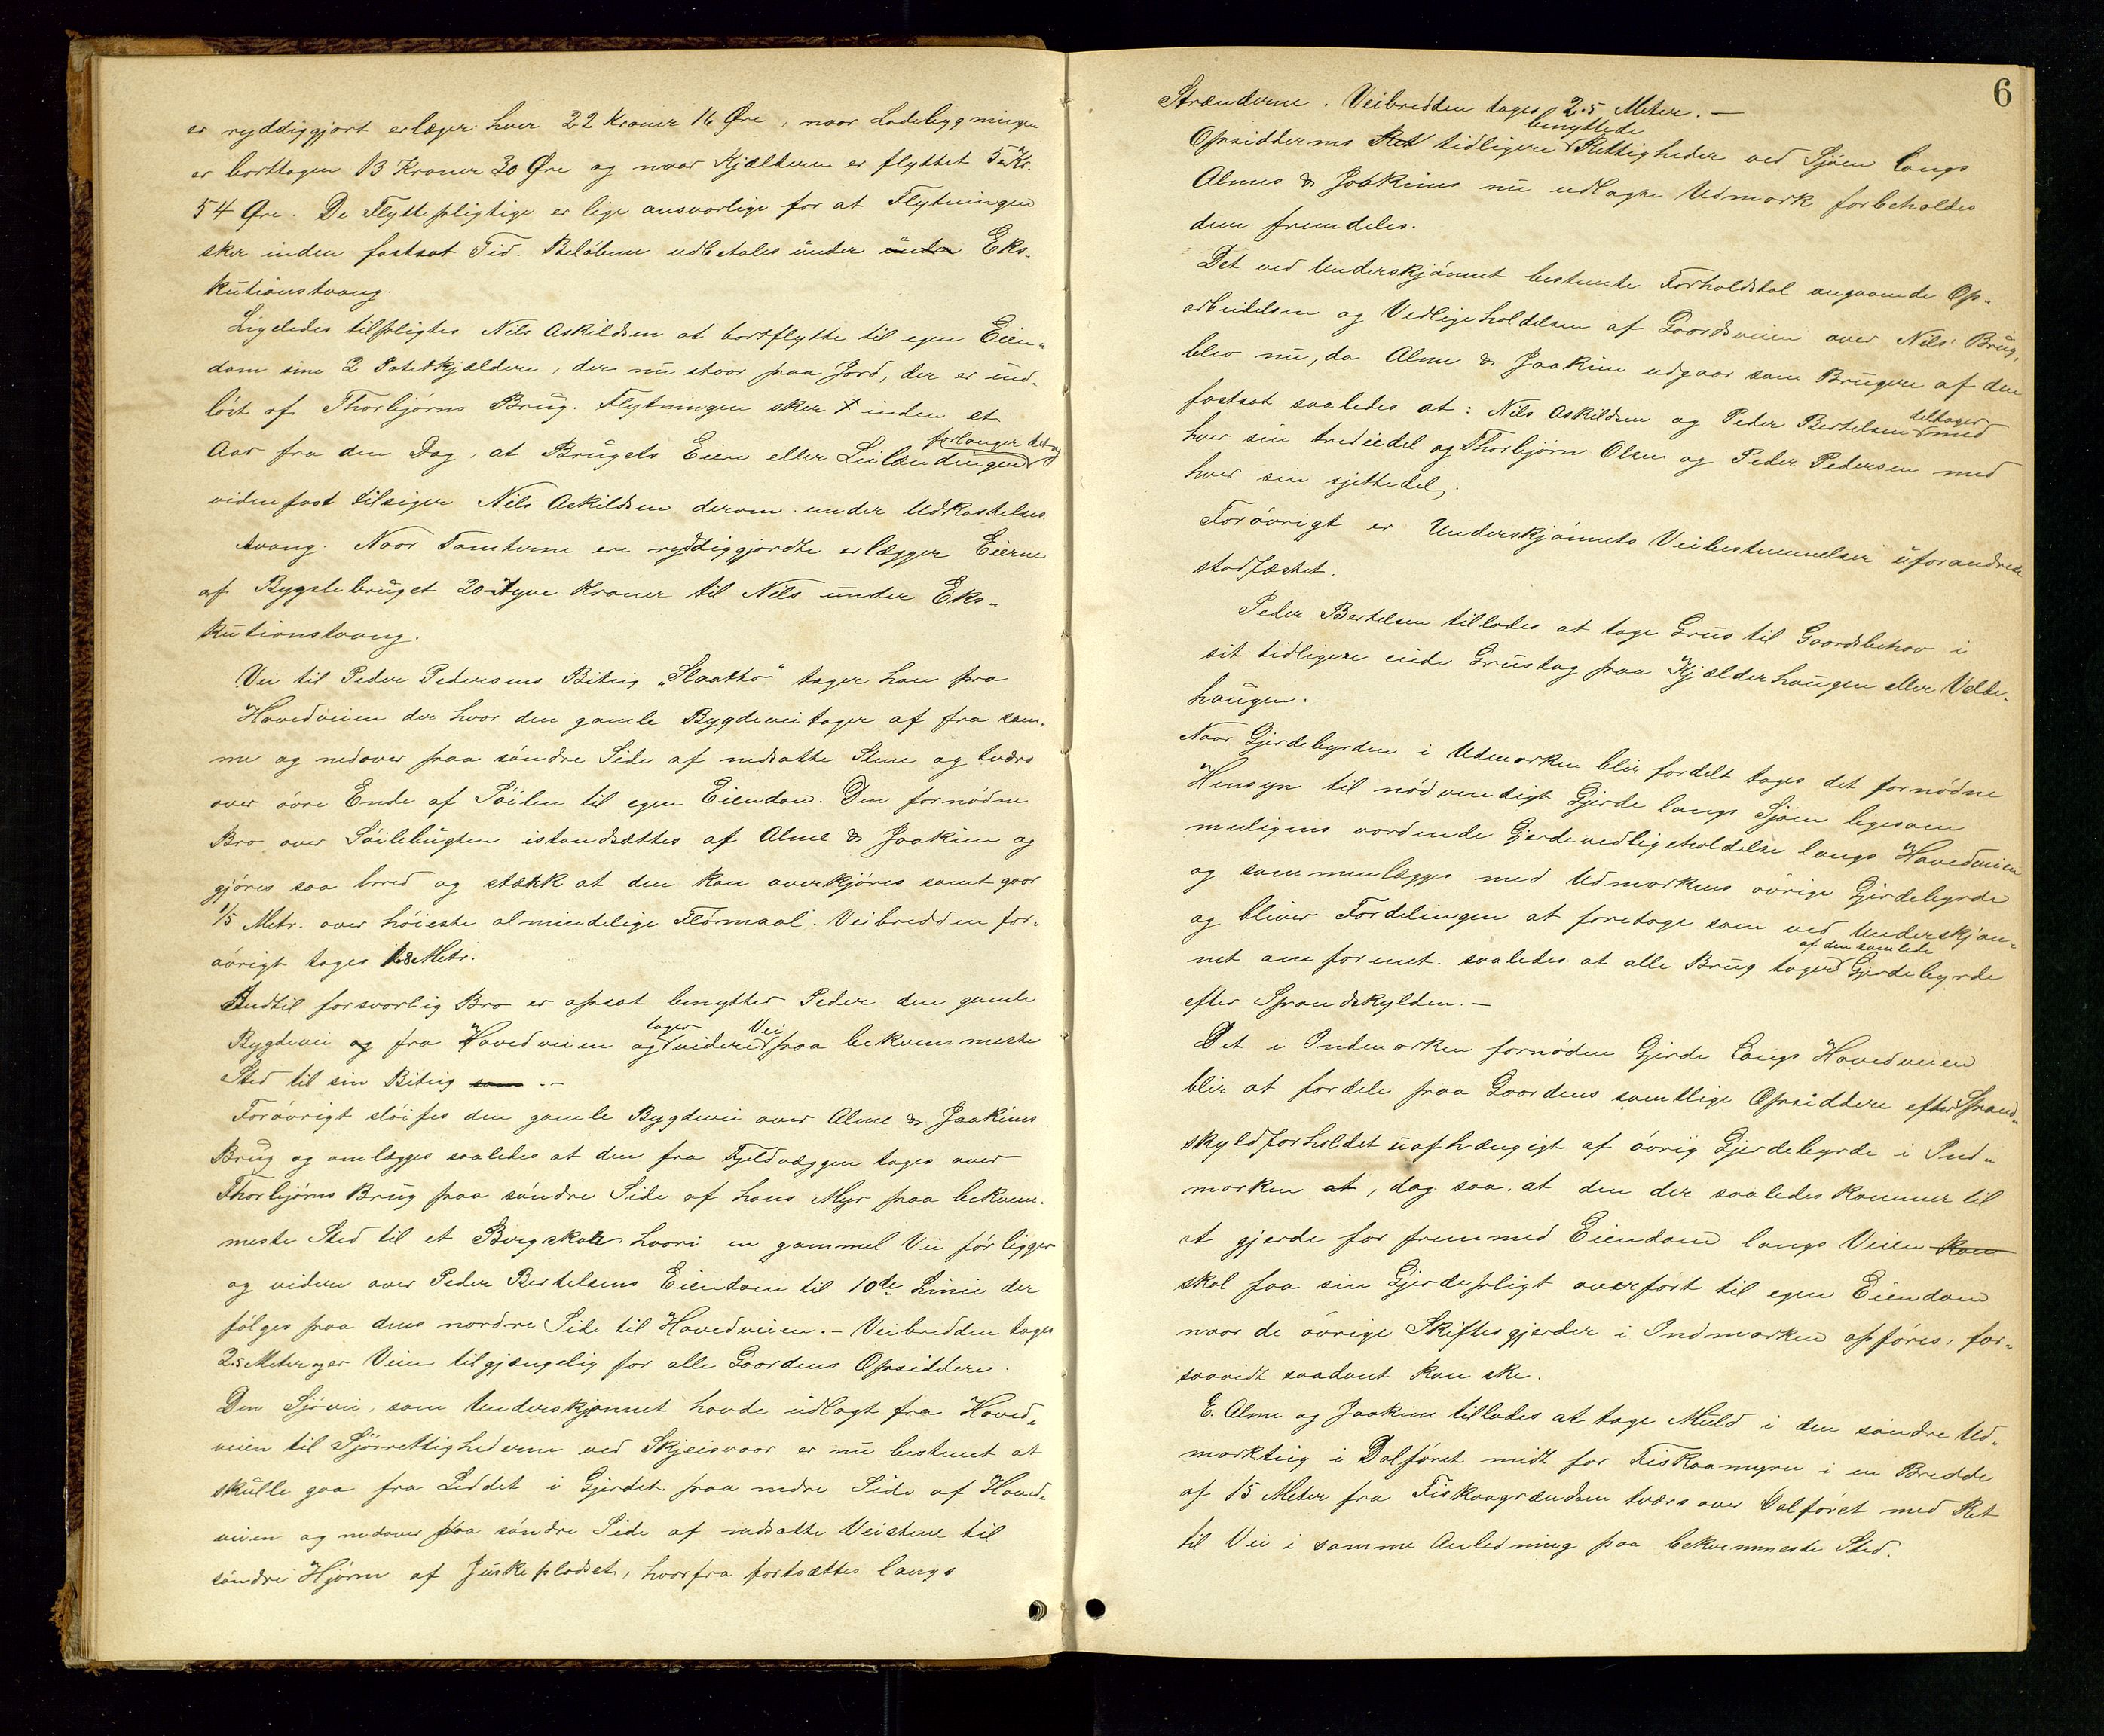 er ryddiggjort erlæger hver 22 Kroner 16 Øre, naar Ladebygningen
er borttagen 13 Kroner 30 Øre og naar Kjælderen er flyttet 5 Kr.
54 Øre. De Flyttepligtige er lige ansvarlige for at Flytningen
sker inden fastsat Tid. Beløbene udbetales under under Eks-
kutionstvang.
Ligeledes tilpligtes Nils Askildsen at bortflytte til egen Eien-
dom sine 2 Potetkjældere, der nu staar paa Jord, der er ind-
løst af Thorbjørns Brug. Flytningen sker inden et
forlanger det og
Aar fra den Dag, at Brugets Eiere eller Leilændingen
vidnefast tilsiger Nils Askildsen derom under Udkastelses
tvang. Naar Tomterne ere ryddiggjordte erlægger Eierne
af Bygslebruget 20 tyve Kroner til Nils under Eks-
kutionstvang.
Vei til Peder Pedersens Biteig "Slaatto" tager han fra
Hovedveien der hvor den gamle Bygdevei tager af fra sam-
me og nedover paa søndre Side af nedsatte Stene og tvers
over øvre Ende af Søilen til egen Eiendom. Den fornødne
Bro over Søilebugten istandsættes af Alme & Joakim og
gjøres saa bred og stærk at den kan overkjøres samt gaar
1/5 Metr. over høieste almindelige Flormaal. Veibredden for-
øvrigt tages 1.8 Metr.
Indtil forsvarlig Bro er opsat benytter Peder den gamle
tager Vei
Bygdevei og fra Hovedveien og videre paa bekvemmeste
Sted til sin Biteig som . -
Forøvrigt sløifes den gamle Bygdevei over Alme & Joakims
Brug og omlægges saaledes at den fra Fjeldvæggen tages over
Thorbjørns Brug paa søndre Side af hans Myr paa bekvem-
meste Sted til et Bergskar hvori en gammel Vei før ligger
og videre over Peder Bertelsens Eiendom til 10de Linie der
følges paa dens nordre Side til Hovedveien. - Veibredden tages
2.5 Meter og er Veien tilgjængelig for alle Gaardens Opsiddere.
Den Sjøvei, som Underskjønnet havde udlagt fra Hoved-
veien til Sjørettighederne ved Skjeisvaar er nu bestemt at
skulle gaa fra Leddet i Gjerdet paa nedre Side af Hoved-
veien og nedover paa søndre Side af nedsatte Veistene til
søndre Hjørne af Juskepladset, hvorfra fortsættes langs
6
Strænderne. Veibredden tages 2.5 Meter. -
benyttede
Opsiddernes Ret tidligere Rettigheder ved Sjøen langs
Almes & Joakims nu udlagte Udmark forbeholdes
dem fremdeles.
Det ved Underskjønnet bestemte Forholdstal angaaende Op-
arbeidelsen og Vedligeholdelsen af Gaardsveien over Nils' Brug,
blev nu, da Alme & Joakim udgaar som Brugere af den
fastsat saaledes at: Nils Askildsen og Peder Bertelsen med
deltager
hver sin trediedel og Thorbjørn Olsen og Peder Pedersen med
hver sin sjettedel.
Forøvrigt er Underskjønnets Veibestemmelser uforandret
stadfæstet.
Peder Bertelsen tillades at tage Grus til Gaardsbehov i
sit tidligere eiede Grustag paa Kjælderhaugen eller Velte-
haugen.
Naar Gjerdebyrden i Udmarken blir fordelt tages det fornødne
Hensyn til nødvendigt Gjerde langs Sjøen ligesom
muligens vordende Gjerdevedligeholdelse langs Hovedveien
og sammenlægges med Udmarkens øvrige Gjerdebyrde
og bliver Fordelingen at foretage som ved Underskjøn-
af den samlede
net om formet. saaledes at alle Brug tager Gjerdebyrde
efter Spandskylden. -
Det i Indmarken fornødne Gjerde langs Hovedveien
blir at fordele paa Gaardens samtlige Opsiddere efter Spand-
skyldforholdet uafhængigt af øvrig Gjerdebyrde i Ind-
marken at, dog saa, at den der saaledes kommer til
at gjerde for fremmed Eiendom langs Veien kom
skal faa sin Gjerdepligt overført til egen Eiendom
naar de øvrige Skiftesgjerder i Indmarken opføres, for-
saavidt saadant kan ske.
E. Alme og Joakim tillades at tage Muld i den søndre Ud-
markteig i Dalføret midt for Fiskaamyren i en Bredde
af 15 Meter fra Fiskaagrændsen tvers over Dalføret med Ret
til Vei i samme Anledning paa bekvemmeste Sted.